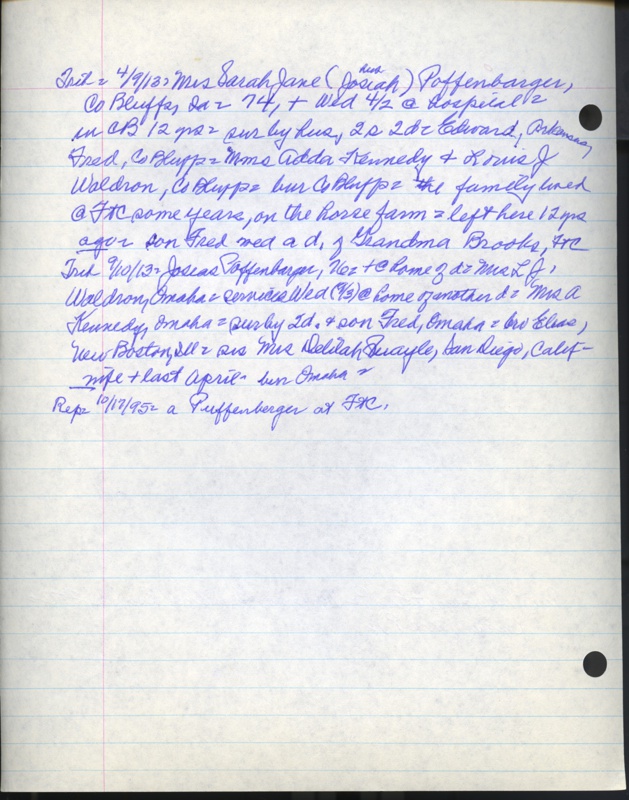 Trib = 4/9/13 = Mrs Sarah Jane (Josiah) Poffenbarger,
Co Bluffs, Ia = 74, + Wed 4/2 @ hospital =
in CB 12 yrs = sur by hus, 2s 2d = Edward, Arkansas,
Fred, Co Bluffs = Mmes Adda Kennedy & Louis J
Waldron, Co Bluffs = bur Co Bluffs = the family lived
@ FtC some years, on the horse farm = left here 12 yrs
ago = son Fred wed a d. of Grandma Brooks, FtC
Trib 9/10/13 = Josias Poffenbarger, 76 = + @ home of d = Mrs L J,
Waldron, Omaha = services Wed (9/3) @ home of another d = Mrs A
Kennedy, Omaha = sur by 2d. & son Fred, Omaha = bro Elias,
New Boston, Ill = sis Mrs Delilah Swayle, San Diego, Calif =
wife + last April = bur Omaha =
Rep = 10/17/95 = a Puffenberger at FtC.